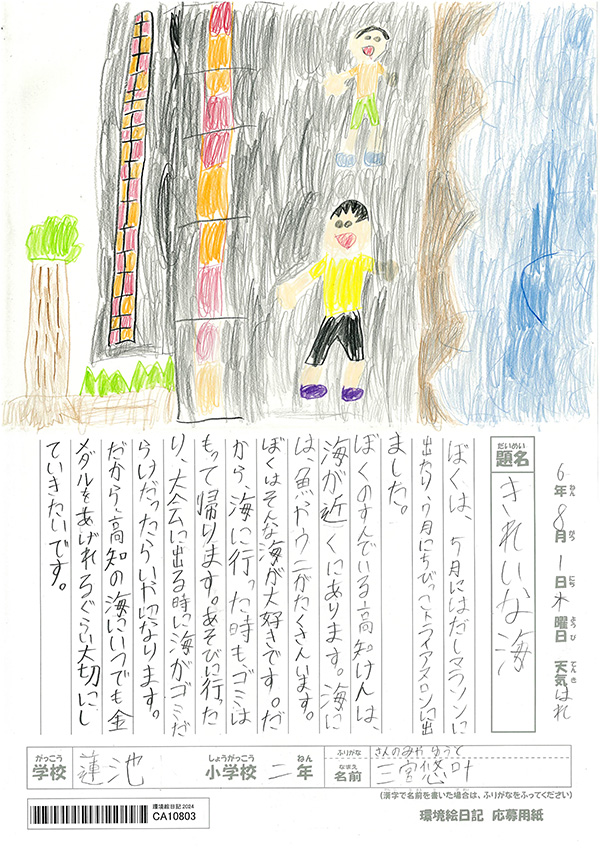 6年 8月 1日 木曜日 天気 はれ
ねん がつ にち ようび てんき
だいめい
題名 きれいな海
ぼくは、5月にはだしマラソンに
出たり、7月にちびっこトライアスロンに出
ました。
ぼくのすんでいる高知けんは、
海が近くにあります。海に
は、魚やウニがたくさんいます。
ぼくはそんな海が大好きです。だ
から、海に行った時もゴミは
もって帰ります。あそびに行った
り、大会に出る時に海がゴミだ
らけだったらいやになります。
だから、高知の海にいつでも金
メダルをあげれるぐらい大切にし
ていきたいです。
がっこう しょうがっこう ねん
学校 蓮池 小学校 二年
ふりがな さんのみや ゆうと
なまえ
名前 三宮悠叶
(漢字で名前を書いた場合は、ふりがなをふってください)
環境絵日記 2024
CA10803
環境絵日記 応募用紙